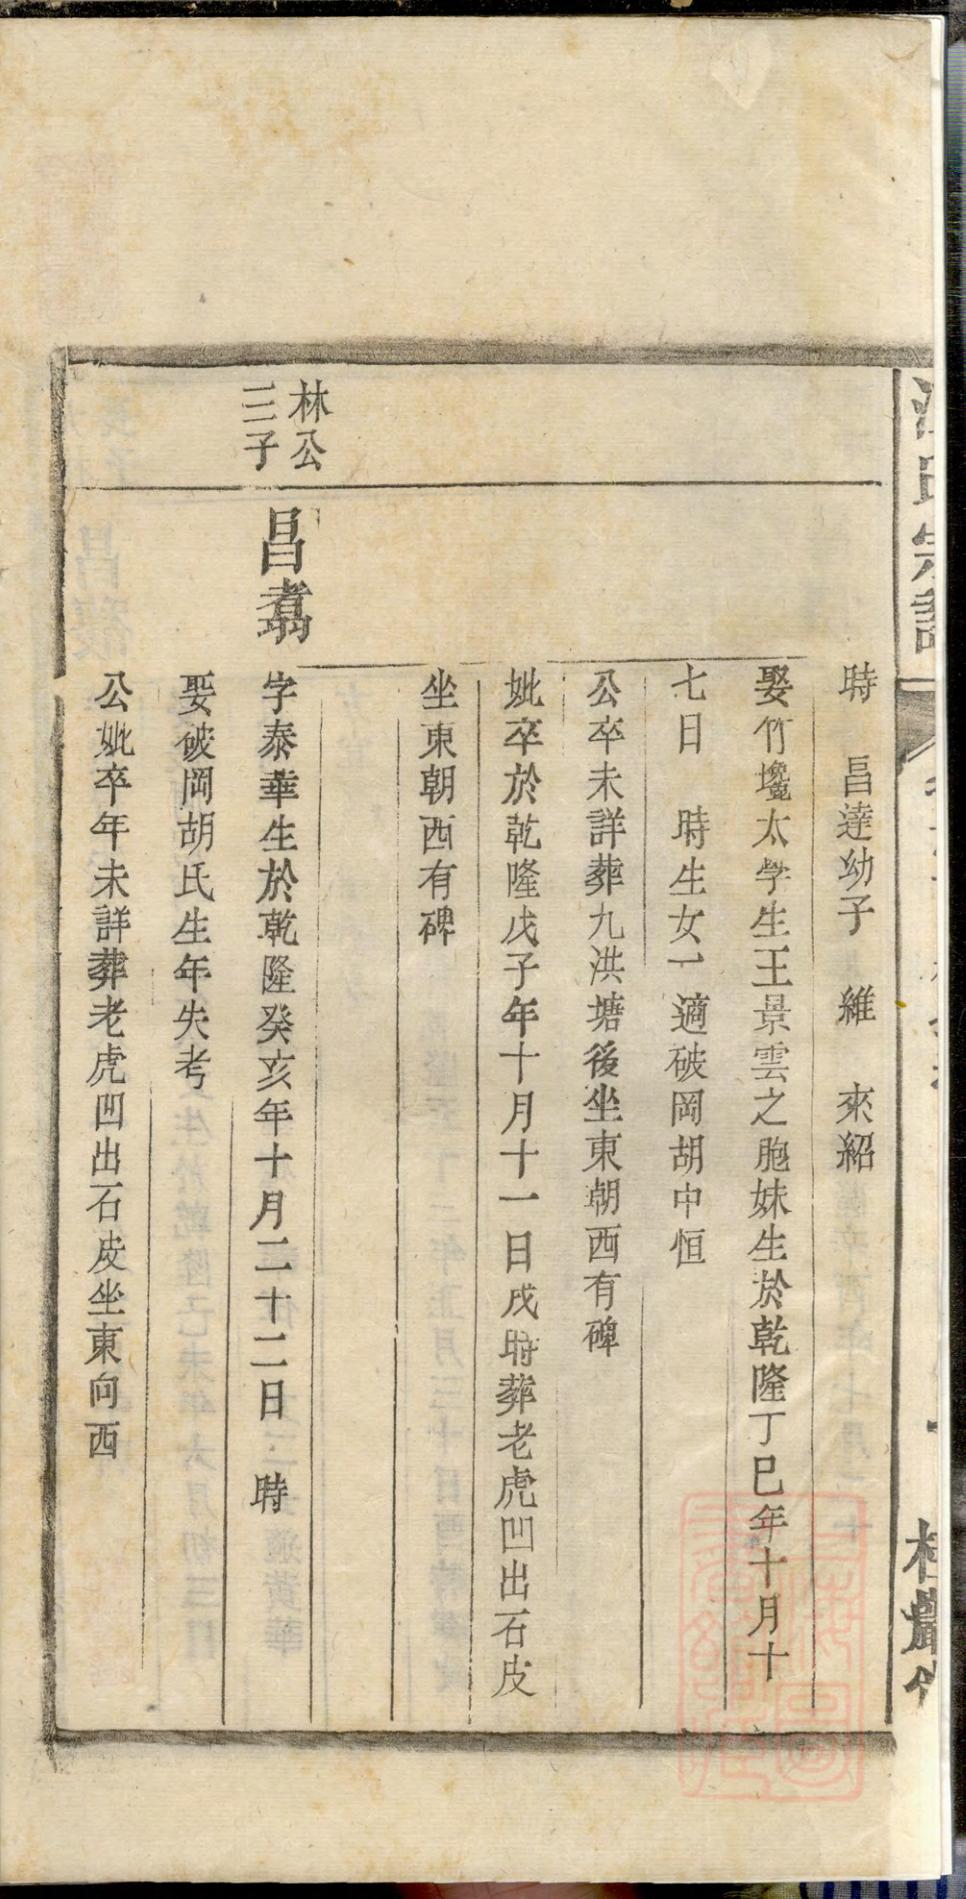 氏宗譜
時　昌達幼子　維　來紹
娶竹墈太学生王景雲之胞妹生於乾隆丁巳年十月十
七日　時生女一適破岡胡中恒
公卒未詳葬九洪塘後坐東朝西有碑
妣卒於乾隆戊子年十月十一日戌時葬老虎凹出石皮
坐東朝西有碑
林公
三子
昌翥
字泰華生於乾隆癸亥年十月二十二日　時
娶破岡胡氏生年失考
公妣卒年未詳葬老虎凹出石皮坐東向西